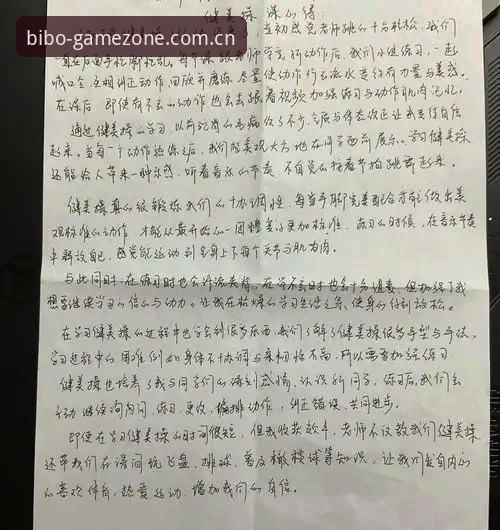 健美操 课心得:
bibo-gamezone.com.cn
当初感觉老师跳的十分轻松,我们
每节课跟老师学完新动作后,我们小组练习,一起
喊口令,互相纠正动作回放并磨练,尽量使动作行云流水变得有力量与美感。
在课后 即使有不会的动作也会去跟着视频加强练习与动作肌肉记忆。
通过健美操的学习,以前驼背的毛病改了不少,气质与体态改正让我变得自信
起来。当每一个动作熟练之后,我们能美观大方地在同学面前展示。学习健美操
还能给人带来一种乐感,听着音乐的节奏 不自觉的按着节拍跳跃起来。
健美操真的很锻炼我们的协调性,每当手脚完美配合才能做出美
观标准的动作,才能从最开始的一团糟变得更加标准,练习的时候,在音乐节奏
中释放自己,感觉能运动到全身上下每个关节与肌肉。
与此同时,在练习时也会汗流夹背,在学不会时也会十分沮丧,但加强了我
想要继续学习的信心与动力。让我在枯燥的学习生活之余,使身心得到放松。
在学习健美操的过程中也学会到很多东西,我们了解了健美操很多手型与手法,
学习过程中的困难例如身体不协调与柔韧性不高,所以需要加强练习。
健美操也培养了我与同学们的深刻感情,认识新同学,练习后,我们会
主动继续询问, 练习,更改,编排动作,纠正错误,共同进步。
即使在学习健美操的时间很短,但我收获颇丰,老师不仅教我们健美操,
还带我们在课间玩飞盘、排球、普及橄榄球等知识,让我们发自内心
的喜欢体育,热爱运动,增加我们的自信。